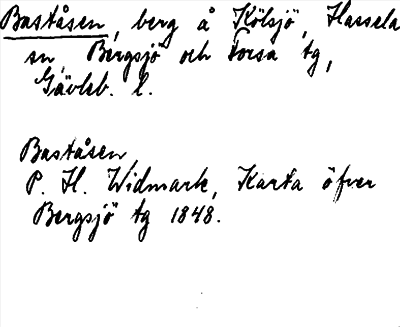 Baståsen, berg å Kölsjö, Hassela
sn, Bergsjö och Forsa tg,
Gävleb. l.
Baståsen
P. H. Widmark, Karta öfver
Bergsjö tg 1848.